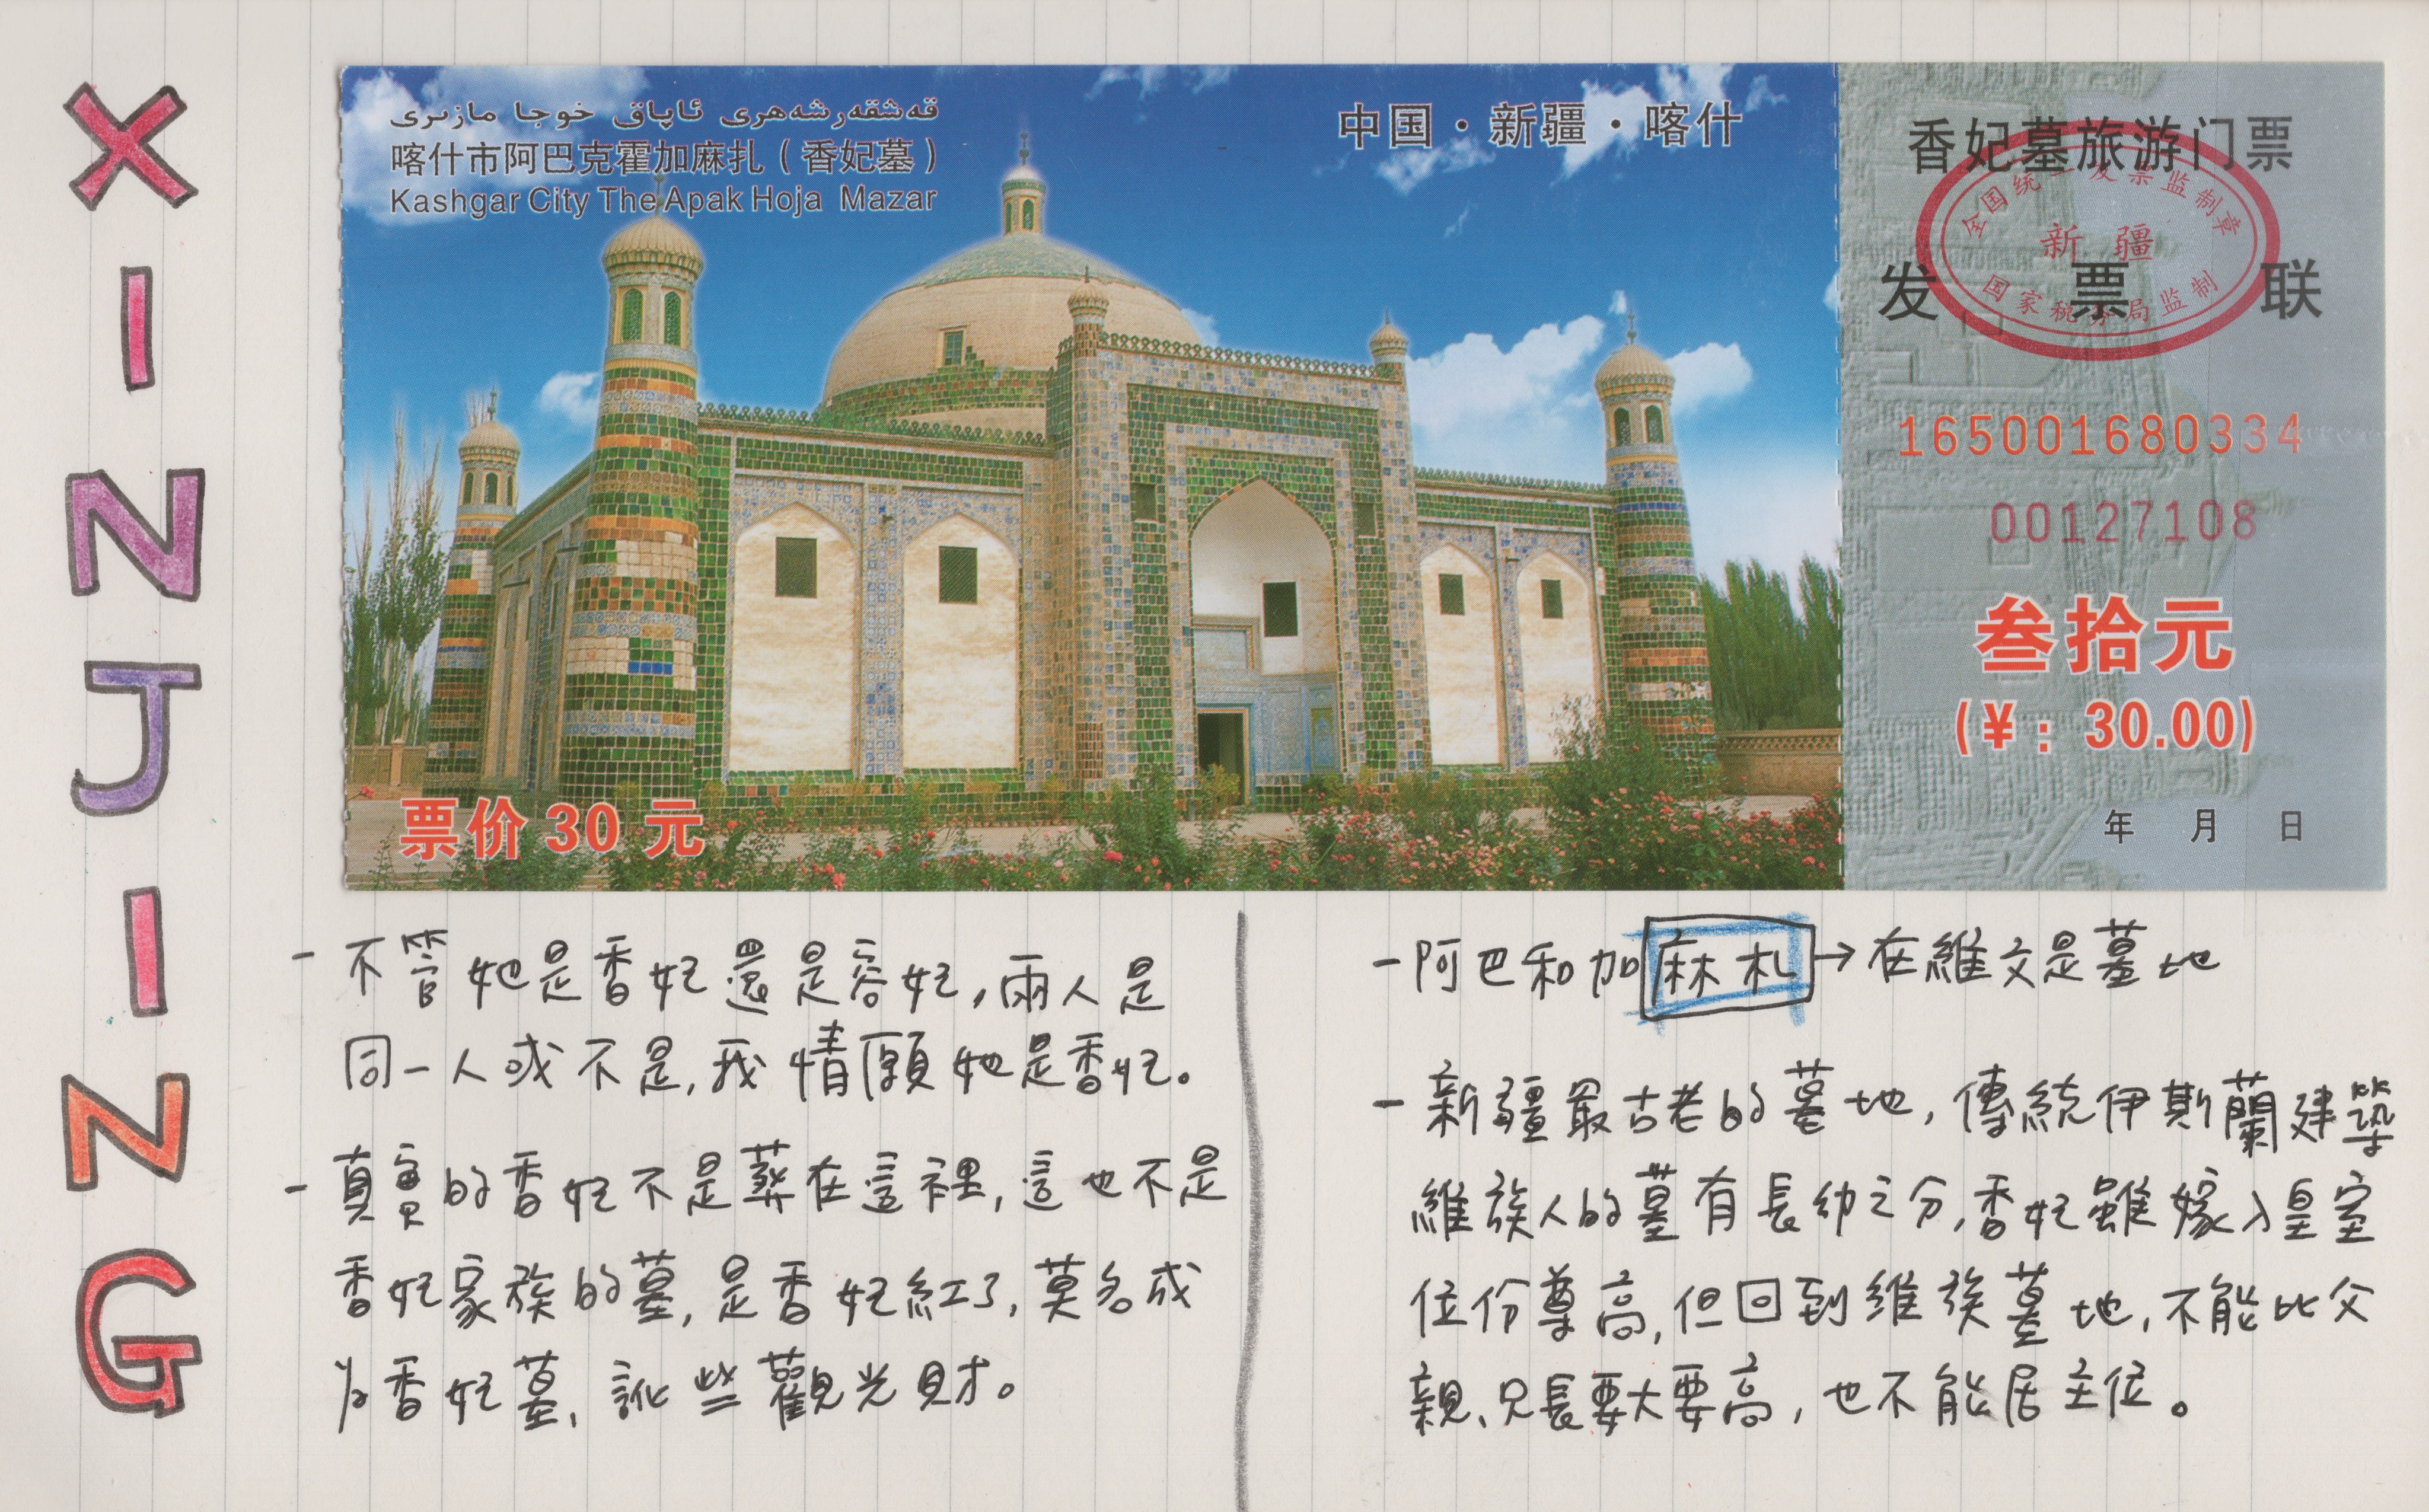 XINJING
قەشقەرشەھرى ئاپاق خوجا مازىرى
喀什市阿巴克霍加麻扎（香妃墓）
Kashgar City The Apak Hoja Mazar
中国·新疆·喀什
票价 30 元
香妃墓旅游门票
全国统一发票监制章
新疆
国家税务局监制
发票联
165001680334
00127108
叁拾元
(¥: 30.00)
年 月 日
- 不管她是香妃還是容妃,兩人是
同一人或不是,我情願她是香妃。
- 真實的香妃不是葬在這裡,這也不是
香妃家族的墓,是香妃紅了,莫名成
为香妃墓,訛些觀光財。
- 阿巴和加麻札→在維文是墓地
- 新疆最古老的墓地,傳統伊斯蘭建築
維族人的墓有長幼之分,香妃雖嫁入皇室
位份尊高,但回到維族墓地,不能比父
親、兄長要大要高,也不能居主位。